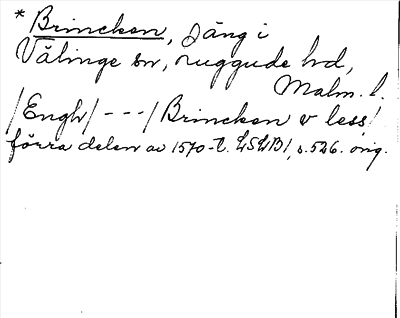 * Brincken, päng i
Välinge sn, Luggude hd,
Malm. l.
/Engh/ - - -/ Brincken v less/
förra delen av 1570-t. LSLB1, s. 526. orig.